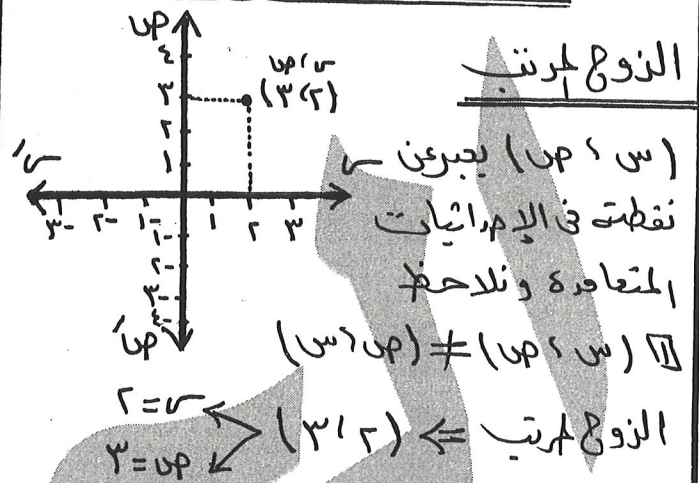 الزوج المرتب
(س ، ص) يعبر عن
نقطة فى الإحداثيات
المتعامدة ونلاحظ
١ (س ، ص) ≠ (ص ، س)
الزوج المرتب ⇐ (٢ ، ٣)
س = ٢
ص = ٣
ص
٤
٣
٢
١
س ، ص
(٢ ، ٣)
سَ
س
٣- ٢- ١- ١ ٢ ٣
١-
٢-
٣-
٤-
صَ